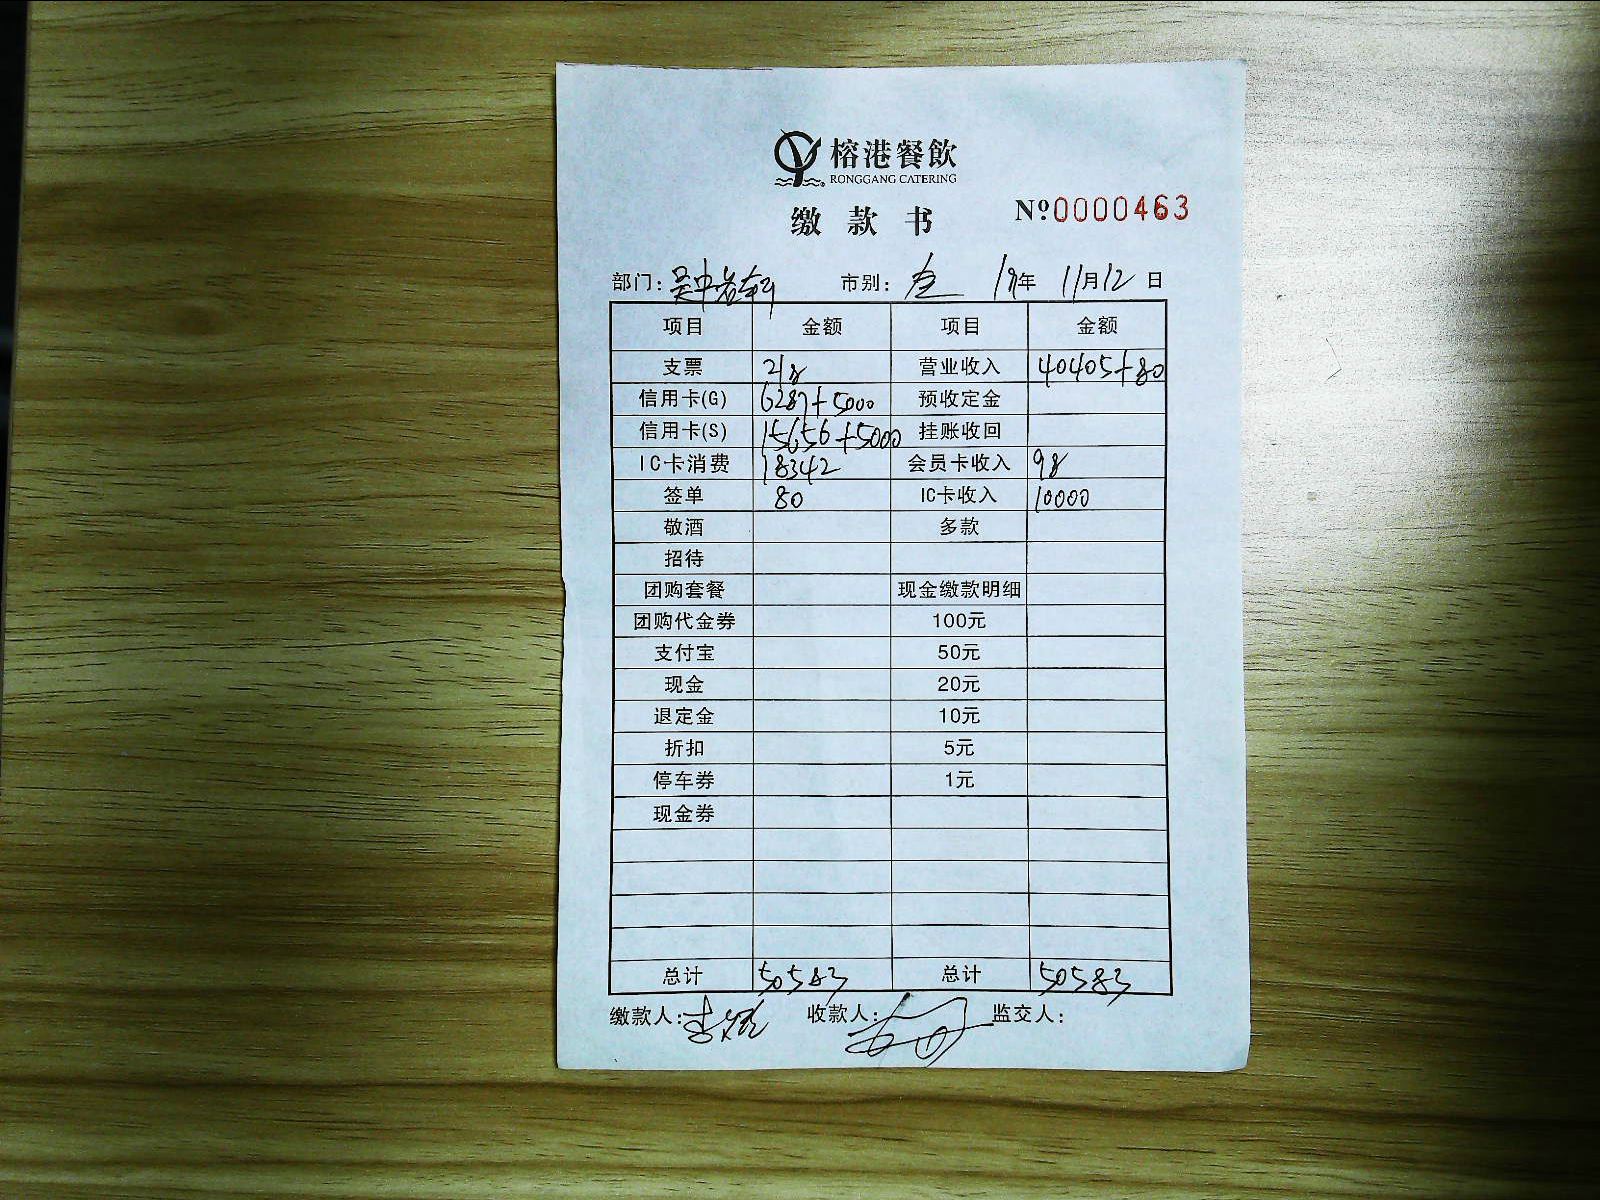 榕港餐飲
RONGGANG CATERING
缴款书 Nº0000463
部门: 吴中 市别: 年 11月12日
项目 金额 项目 金额
支票 218 营业收入 40405+80
信用卡(G) 6287+5000 预收定金
信用卡(S) 15656+5000 挂账收回
IC卡消费 18342 会员卡收入 98
签单 80 IC卡收入 10000
敬酒 多款
招待
团购套餐 现金缴款明细
团购代金券 100元
支付宝 50元
现金 20元
退定金 10元
折扣 5元
停车券 1元
现金券
总计 50583 总计 50583
缴款人: 收款人: 监交人: